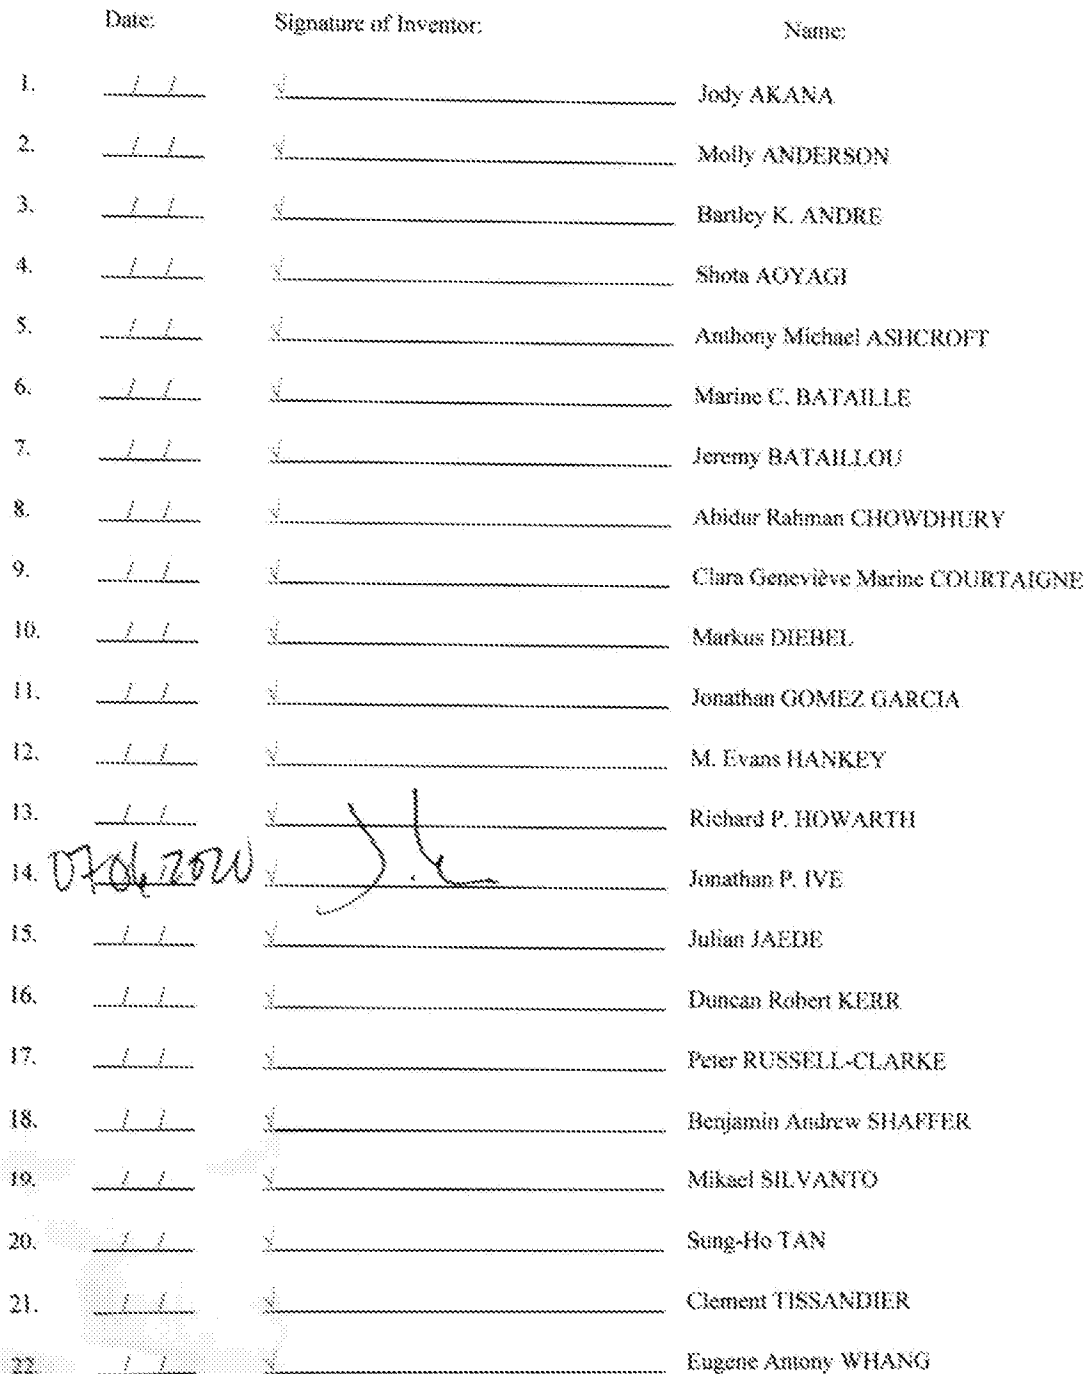 Date: Signature of Inventor: Name:
1. / / √ Jody AKANA
2. / / √ Molly ANDERSON
3. / / √ Bartley K. ANDRE
4. / / √ Shota AOYAGI
5. / / √ Anthony Michael ASHCROFT
6. / / √ Marine C. BATAILLE
7. / / √ Jeremy BATAILLOU
8. / / √ Abidur Rahman CHOWDHURY
9. / / √ Clara Geneviève Marine COURTAIGNE
10. / / √ Markus DIEBEL
11. / / √ Jonathan GOMEZ GARCIA
12. / / √ M. Evans HANKEY
13. / / √ Richard P. HOWARTH
14. 07 04 2020 √ Jonathan P. IVE
15. / / √ Julian JAEDE
16. / / √ Duncan Robert KERR
17. / / √ Peter RUSSELL-CLARKE
18. / / √ Benjamin Andrew SHAFFER
19. / / √ Mikael SILVANTO
20. / / √ Sung-Ho TAN
21. / / √ Clement TISSANDIER
22 / / √ Eugene Antony WHANG